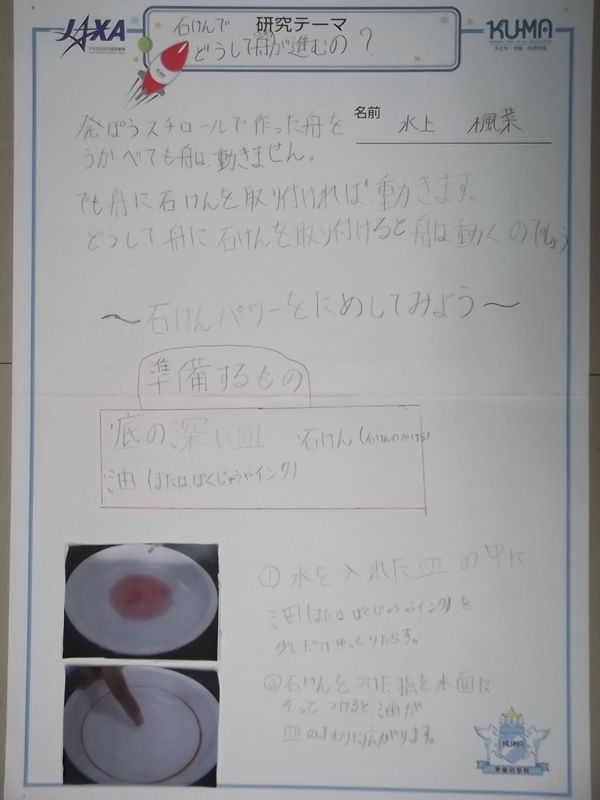 JAXA
研究テーマ
KUMA
石けんで
どうして舟が進むの？
名前
水上 楓菜
発ぽうスチロールで作った舟を
うかべても舟は、動きません。
でも舟に石けんを取り付ければ、動きます。
どうして舟に石けんを取り付けると舟は動くのでしょう
〜石けんパワーをためしてみよう〜
準備するもの
底の深い皿 石けん
油(または、ぼくじゅうやインク)
①水を入れた皿の中に
油(または ぼくじゅうやインク)を
少しだけゆっくりたらす。
②石けんをつけた指を水面に
そっとつけると、油が
皿のまわりに広がります。
KUMA
宇宙の学校